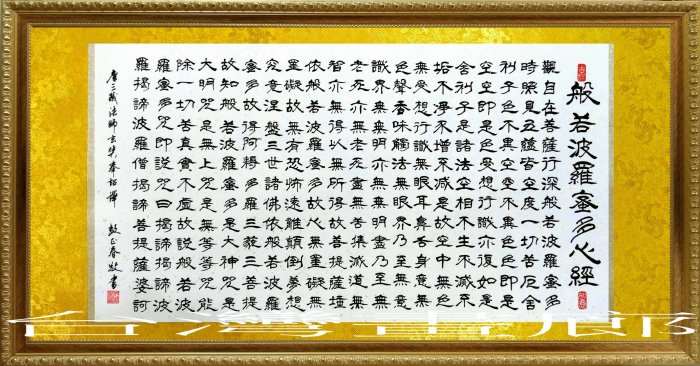 般若波羅蜜多心經
觀自在菩薩行深般若波羅蜜多
時照見五蘊皆空度一切苦厄舍
利子色不異空空不異色色即是
空空即是色受想行識亦復如是
舍利子是諸法空相不生不滅不
垢不淨不增不減是故空中無色
無受想行識無眼耳鼻舌身意無
色聲香味觸法無眼界乃至無意
識界無無明亦無無明盡乃至無
老死亦無老死盡無苦集滅道無
智亦無得以無所得故菩提薩埵
依般若波羅蜜多故心無罣礙無
罣礙故無有恐怖遠離顛倒夢想
究竟涅槃三世諸佛依般若波羅
蜜多故得阿耨多羅三藐三菩提
故知般若波羅蜜多是大神咒是
大明咒是無上咒是無等等咒能
除一切苦真實不虛故說般若波
羅蜜多咒即說咒曰揭諦揭諦波
羅揭諦波羅僧揭諦菩提薩婆訶
唐三藏法師玄奘奉詔譯
台灣書廊